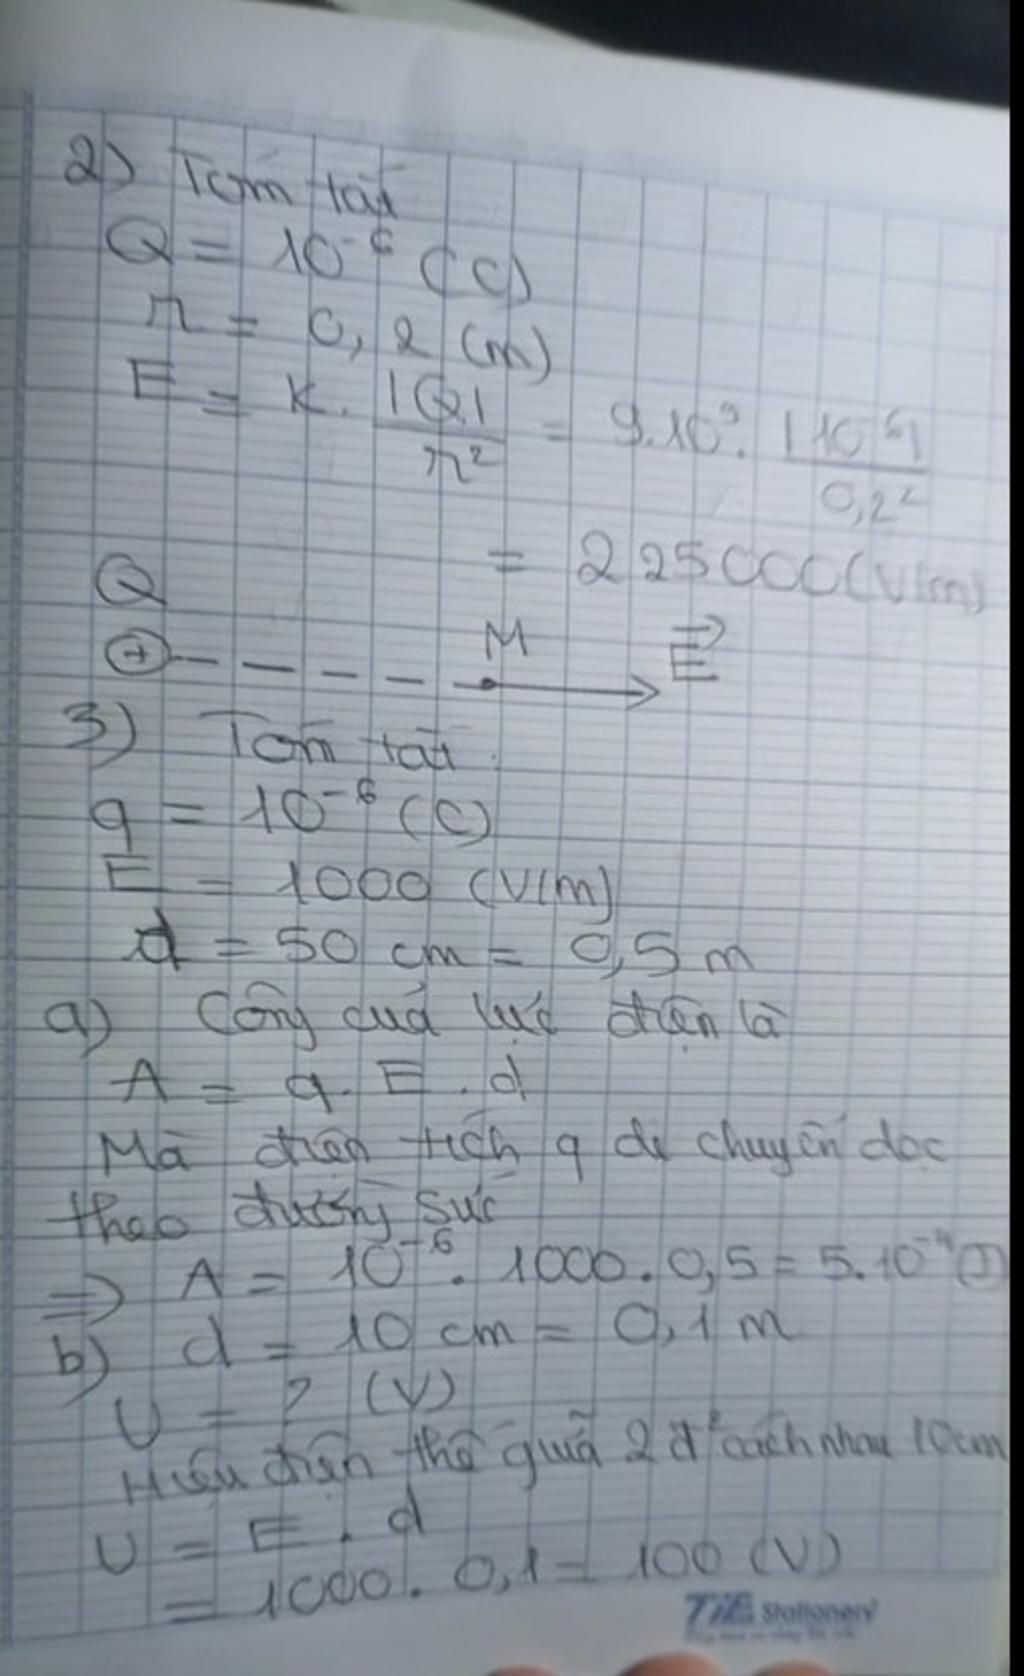 2) Tóm tắt
Q = 10⁻⁶ (C)
r = 0,2 (m)
E = k. |Q| / r² = 9.10⁹. |10⁻⁶| / 0,2²
= 225000 (V/m)
Q
(+) M E⃗
3) Tóm tắt
q = 10⁻⁶ (C)
E = 1000 (V/m)
d = 50 cm = 0,5 m
a) Công của lực điện là
A = q. E . d
Mà điện tích q di chuyển dọc
theo đường sức
=> A = 10⁻⁶. 1000. 0,5 = 5.10⁻⁴ (J)
b) d = 10 cm = 0,1 m
U = ? (V)
Hiệu điện thế giữa 2 đ' cách nhau 10cm
U = E . d
= 1000. 0,1 = 100 (V)
Stationery